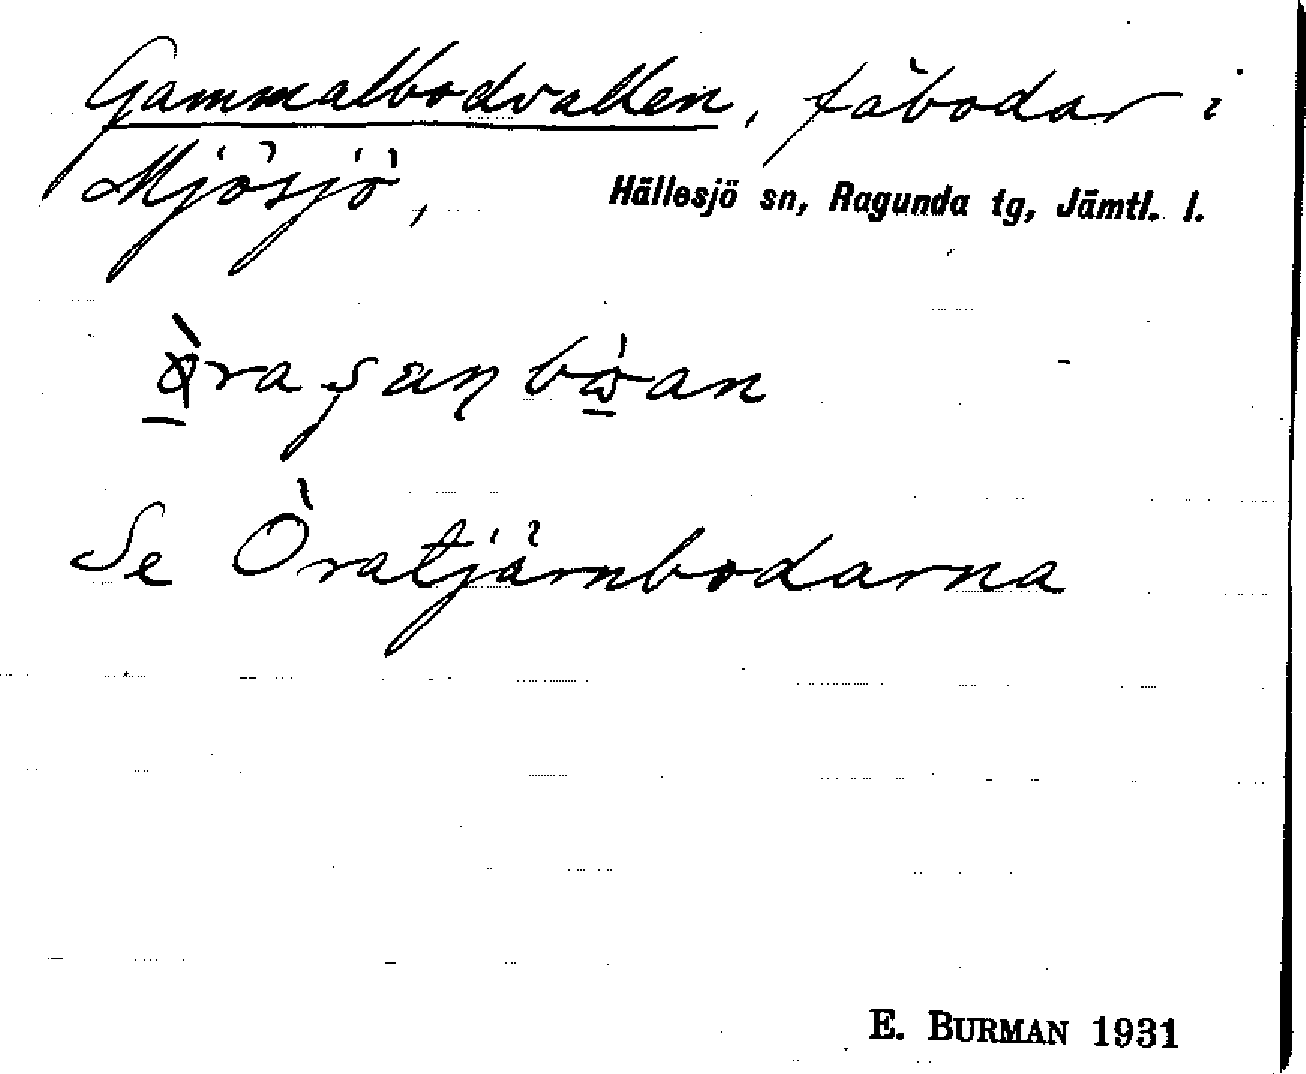 Gammalbodvallen, fäbodar i
Mjösjö, Hällesjö sn, Ragunda tg, Jämtl. l.
Se Öratjärnbodarna
E. BURMAN 1931